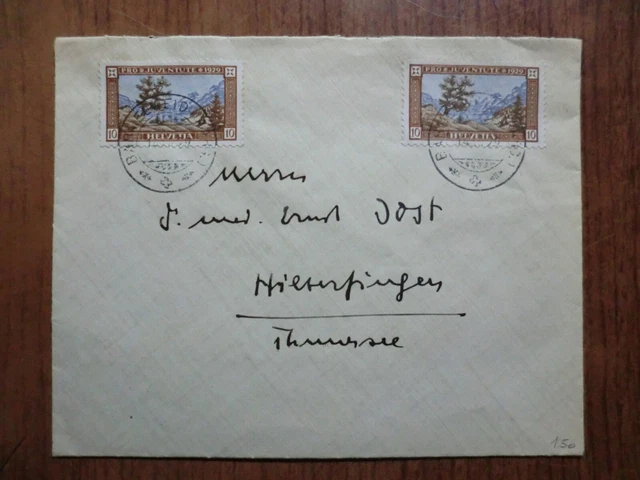 PRO JUVENTUTE 1929
10 HELVETIA 10
PRO JUVENTUTE 1929
10 HELVETIA 10
Herrn
Dr. med. Ernst JOST
Hilterfingen
Thunersee
1.50